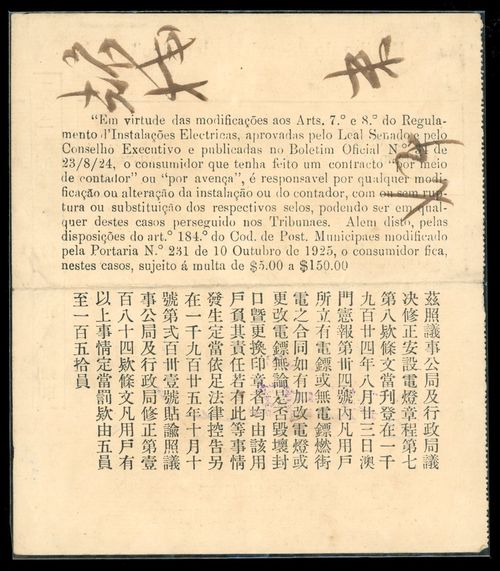 "Em virtude das modificações aos Arts. 7.º e 8.º do Regula-
mento d'Instalações Electricas, aprovadas pelo Leal Senado e pelo
Conselho Executivo e publicadas no Boletim Oficial N.º de
23/8/24, o consumidor que tenha feito um contracto "por meio
de contador" ou "por avença", é responsavel por qualquer modi-
ficação ou alteração da instalação ou do contador, com ou sem rup-
tura ou substituição dos respectivos selos, podendo ser em qual-
quer destes casos perseguido nos Tribunaes. Alem disto, pelas
disposições do art.º 184.º do Cod. de Post. Municipaes modificado
pela Portaria N.º 231 de 10 Outubro de 1925, o consumidor fica,
nestes casos, sujeito á multa de $5.00 a $150.00
茲照議事公局及行政局議
決修正安設電燈章程第七
第八欵條文當刋登在一千
九百廿四年八月廿三日澳
門憲報第卅四號內凡用戶
所立有電鏢或無電鏢燃街
電之合同如有加改電燈或
更改電鏢無論是否毀壞封
口暨更換印章者均由該用
戶負其責任若有此等事情
發生定當依足法律控告另
在一千九百廿五年十月十
號第弍百卅壹號貼諭照議
事公局及行政局修正第壹
百八十四欵條文凡用戶有
以上事情定當罰欵由五員
至一百五拾員